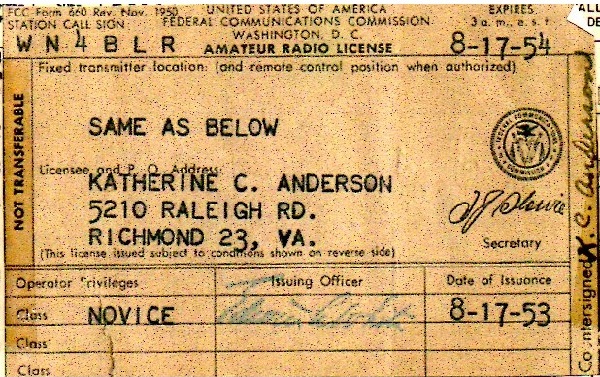 FCC Form 660 Rev. Nov. 1950
UNITED STATES OF AMERICA
EXPIRES
STATION CALL SIGN
FEDERAL COMMUNICATIONS COMMISSION
3 a.m., e.s.t.
WASHINGTON, D. C.
WN4BLR
AMATEUR RADIO LICENSE
8-17-54
Fixed transmitter location: (and remote control position when authorized)
NOT TRANSFERABLE
SAME AS BELOW
Licensee and P. O. Address:
KATHERINE C. ANDERSON
5210 RALEIGH RD.
RICHMOND 23, VA.
Secretary
(This license issued subject to conditions shown on reverse side)
Countersigned K. C. Anderson
Operator Privileges
Issuing Officer
Date of Issuance
Class NOVICE
8-17-53
Class
Class